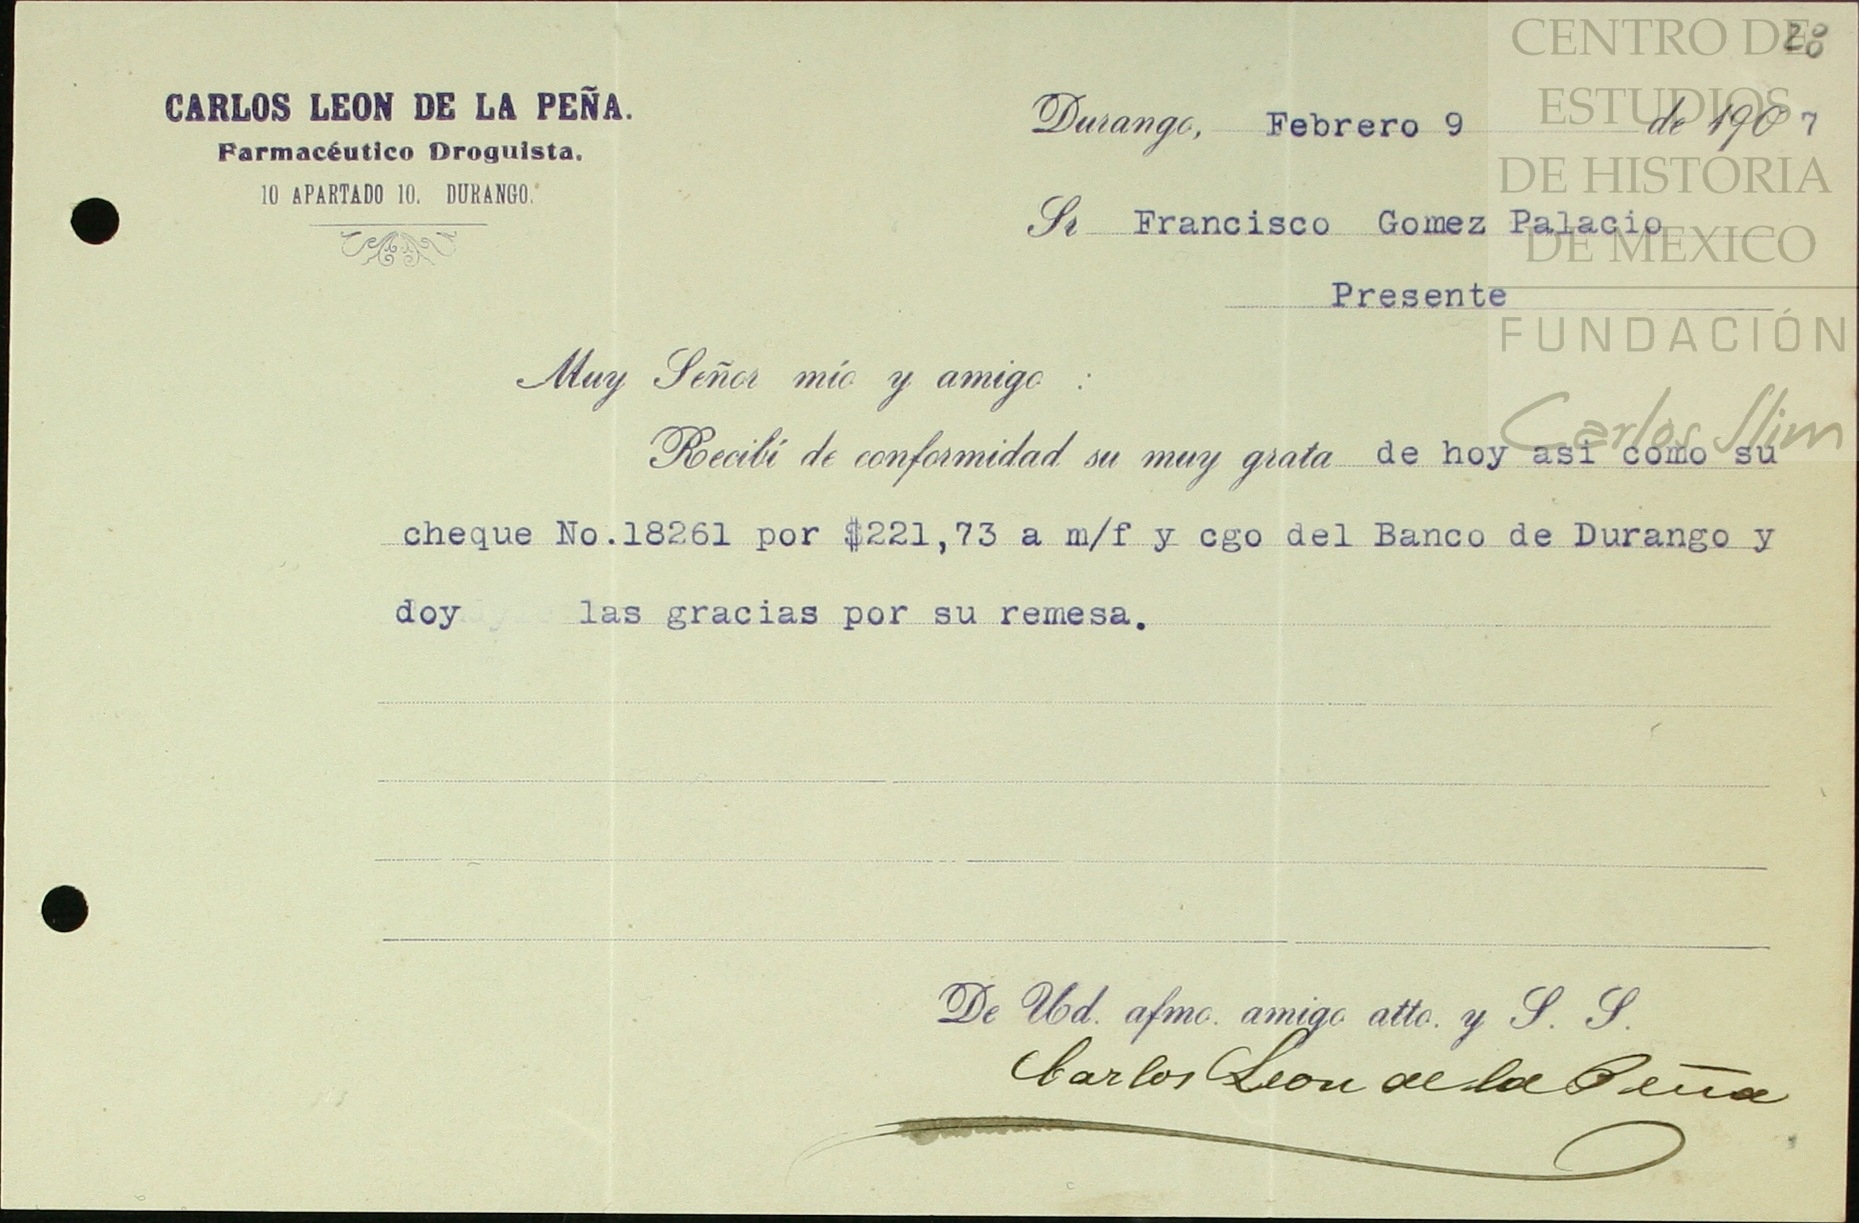 CARLOS LEON DE LA PEÑA.
Farmacéutico Droguista.
10 APARTADO 10. DURANGO.
Durango, Febrero 9 de 1907
Sr Francisco Gomez Palacio
Presente
Muy Señor mío y amigo :
Recibí de conformidad su muy grata de hoy asi como su
cheque No.18261 por $221,73 a m/f y cgo del Banco de Durango y
doy las gracias por su remesa.
De Ud. afmo. amigo atto. y S. S.
Carlos Leon de la Peña
CENTRO DE
ESTUDIOS
DE HISTORIA
DE MEXICO
FUNDACIÓN
Carlos Slim